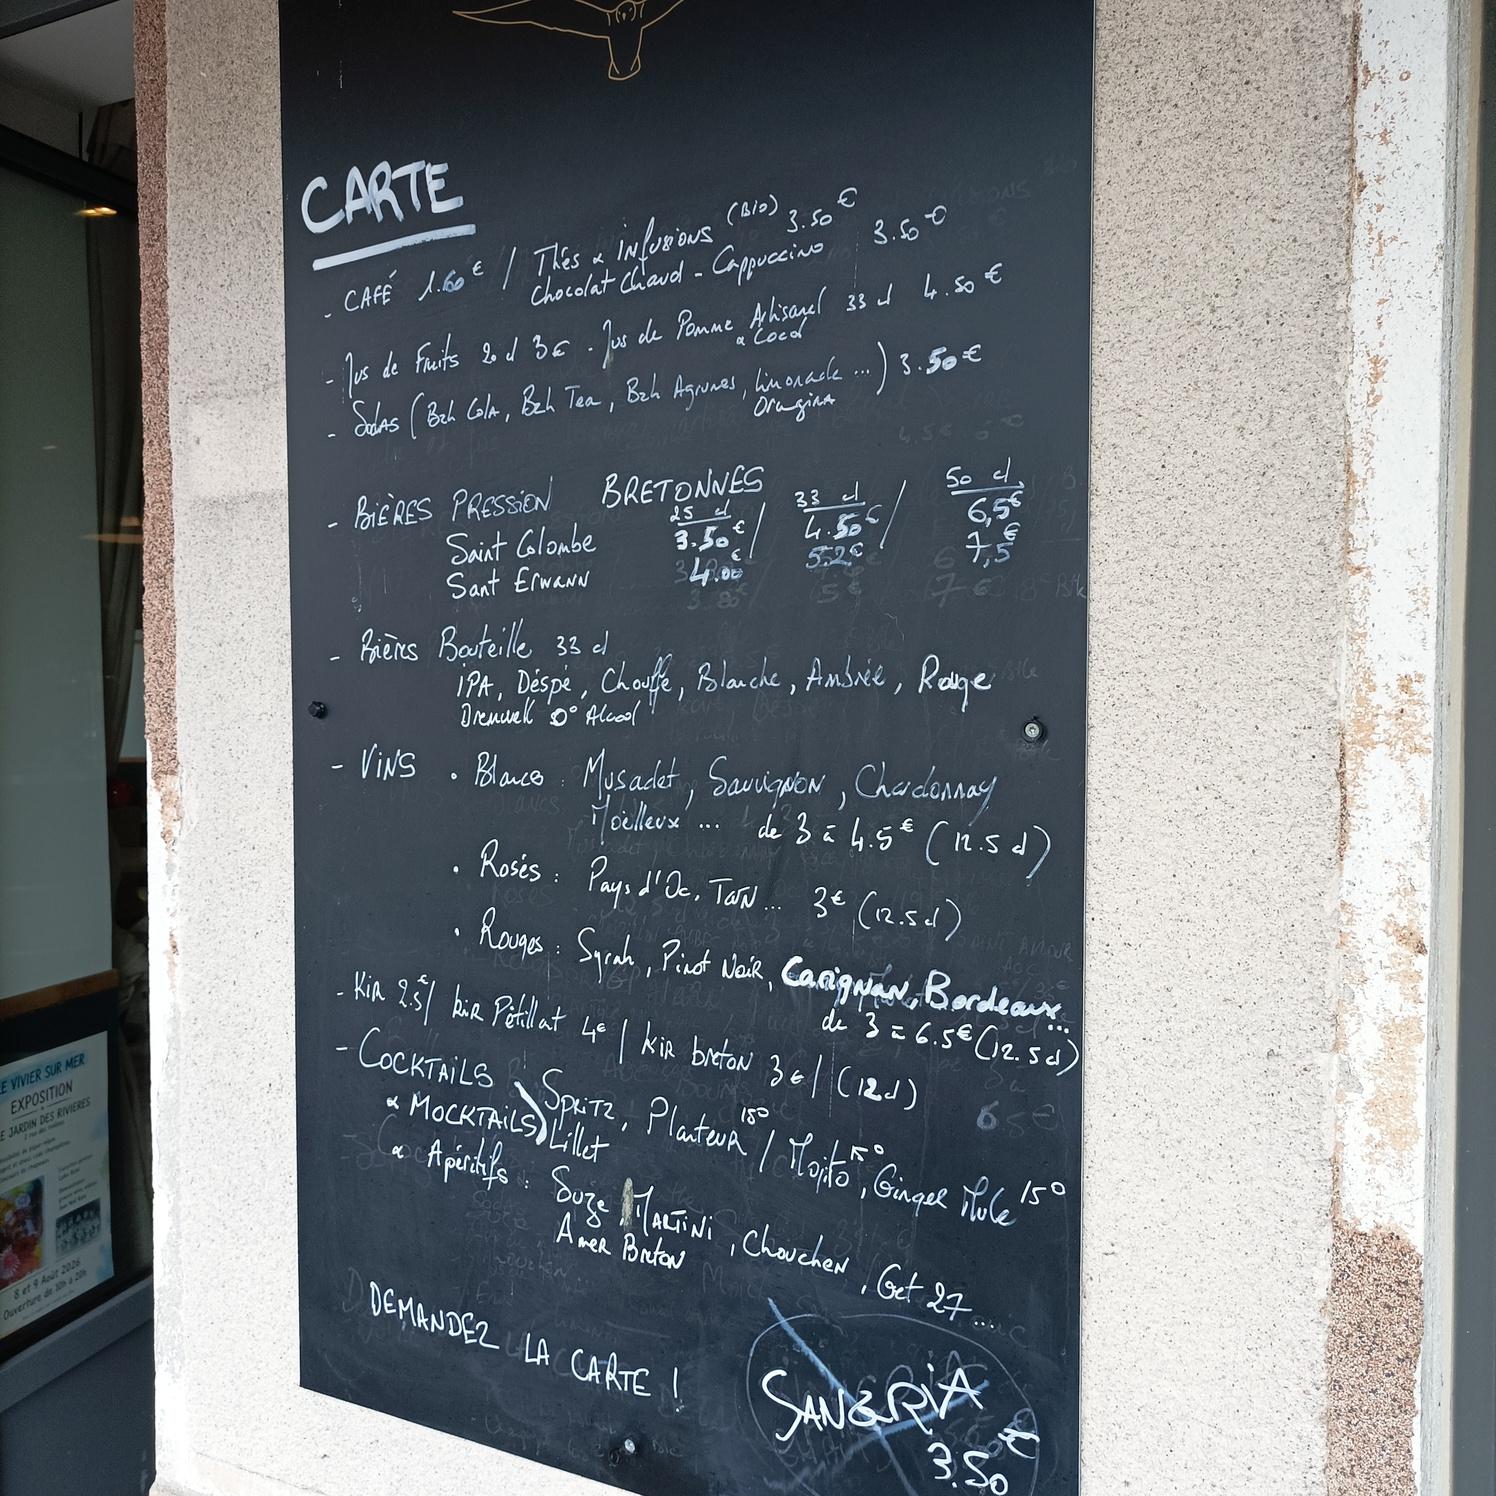 CARTE
- CAFÉ 1.60€ / Thés & INFUSIONS (BIO) 3.50€
Chocolat Chaud - Cappuccino 3.50€
- Jus de Fruits 20 cl 3€ . Jus de Pomme Artisanal 33 cl 4.50€
& Coco
- Sodas (Bzh Cola, Bzh Tea, Bzh Agrumes, Limonade ...) 3.50€
Orangina
- BIÈRES PRESSION BRETONNES
25 cl / 33 cl / 50 cl
Saint Colombe 3.50€ / 4.50€ / 6,5€
Sant Erwann 4.00€ 5.2€ 7,5€
- Bières Bouteille 33 cl
IPA, Déspé, Chouffe, Blanche, Ambrée, Rouge
Dremwell 0° Alcool
- VINS . Blancs : Musadet, Sauvignon, Chardonnay
Moëlleux ... de 3 à 4.5€ (12.5 cl)
. Rosés : Pays d'Oc, TARN... 3€ (12.5 cl)
. Rouges : Syrah, Pinot Noir, Carignan, Bordeaux...
de 3 à 6.5€ (12.5 cl)
- Kir 2.5€ / kir Pétillat 4€ / kir breton 3€ / (12 cl)
- COCKTAILS
& MOCKTAILS) Spritz, Planteur 15° / Mojito 15°, Ginger Mule 15°
Lillet
& Apéritifs : Suze, MARTINI, Chouchen, Get 27...
Amer Breton
DEMANDEZ LA CARTE !
SANGRIA
3.50€
LE VIVIER SUR MER
EXPOSITION
LE JARDIN DES RIVIERES
8 et 9 Août 2026
Ouverture de 10h à 20h